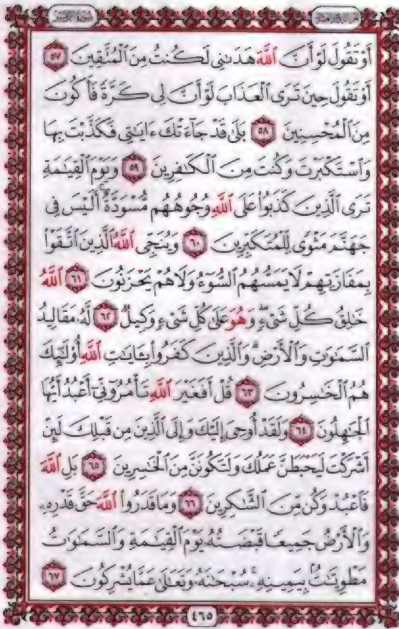 أَوۡ تَقُولَ لَوۡ أَنَّ ٱللَّهَ هَدَىٰنِي لَكُنتُ مِنَ ٱلۡمُتَّقِينَ ٥٧
أَوۡ تَقُولَ حِينَ تَرَى ٱلۡعَذَابَ لَوۡ أَنَّ لِي كَرَّةٗ فَأَكُونَ
مِنَ ٱلۡمُحۡسِنِينَ ٥٨ بَلَىٰ قَدۡ جَآءَتۡكَ ءَايَٰتِي فَكَذَّبۡتَ بِهَا
وَٱسۡتَكۡبَرۡتَ وَكُنتَ مِنَ ٱلۡكَٰفِرِينَ ٥٩ وَيَوۡمَ ٱلۡقِيَٰمَةِ
تَرَى ٱلَّذِينَ كَذَبُواْ عَلَى ٱللَّهِ وُجُوهُهُم مُّسۡوَدَّةٌۚ أَلَيۡسَ فِي
جَهَنَّمَ مَثۡوٗى لِّلۡمُتَكَبِّرِينَ ٦٠ وَيُنَجِّي ٱللَّهُ ٱلَّذِينَ ٱتَّقَوۡاْ
بِمَفَازَتِهِمۡ لَا يَمَسُّهُمُ ٱلسُّوٓءُ وَلَا هُمۡ يَحۡزَنُونَ ٦١ ٱللَّهُ
خَٰلِقُ كُلِّ شَيۡءٖۖ وَهُوَ عَلَىٰ كُلِّ شَيۡءٖ وَكِيلٞ ٦٢ لَّهُۥ مَقَالِيدُ
ٱلسَّمَٰوَٰتِ وَٱلۡأَرۡضِۗ وَٱلَّذِينَ كَفَرُواْ بِـَٔايَٰتِ ٱللَّهِ أُوْلَٰٓئِكَ
هُمُ ٱلۡخَٰسِرُونَ ٦٣ قُلۡ أَفَغَيۡرَ ٱللَّهِ تَأۡمُرُوٓنِّيٓ أَعۡبُدُ أَيُّهَا
ٱلۡجَٰهِلُونَ ٦٤ وَلَقَدۡ أُوحِيَ إِلَيۡكَ وَإِلَى ٱلَّذِينَ مِن قَبۡلِكَ لَئِنۡ
أَشۡرَكۡتَ لَيَحۡبَطَنَّ عَمَلُكَ وَلَتَكُونَنَّ مِنَ ٱلۡخَٰسِرِينَ ٦٥ بَلِ ٱللَّهَ
فَٱعۡبُدۡ وَكُن مِّنَ ٱلشَّٰكِرِينَ ٦٦ وَمَا قَدَرُواْ ٱللَّهَ حَقَّ قَدۡرِهِۦ
وَٱلۡأَرۡضُ جَمِيعٗا قَبۡضَتُهُۥ يَوۡمَ ٱلۡقِيَٰمَةِ وَٱلسَّمَٰوَٰتُ
مَطۡوِيَّٰتُۢ بِيَمِينِهِۦۚ سُبۡحَٰنَهُۥ وَتَعَٰلَىٰ عَمَّا يُشۡرِكُونَ ٦٧
٤٦٥